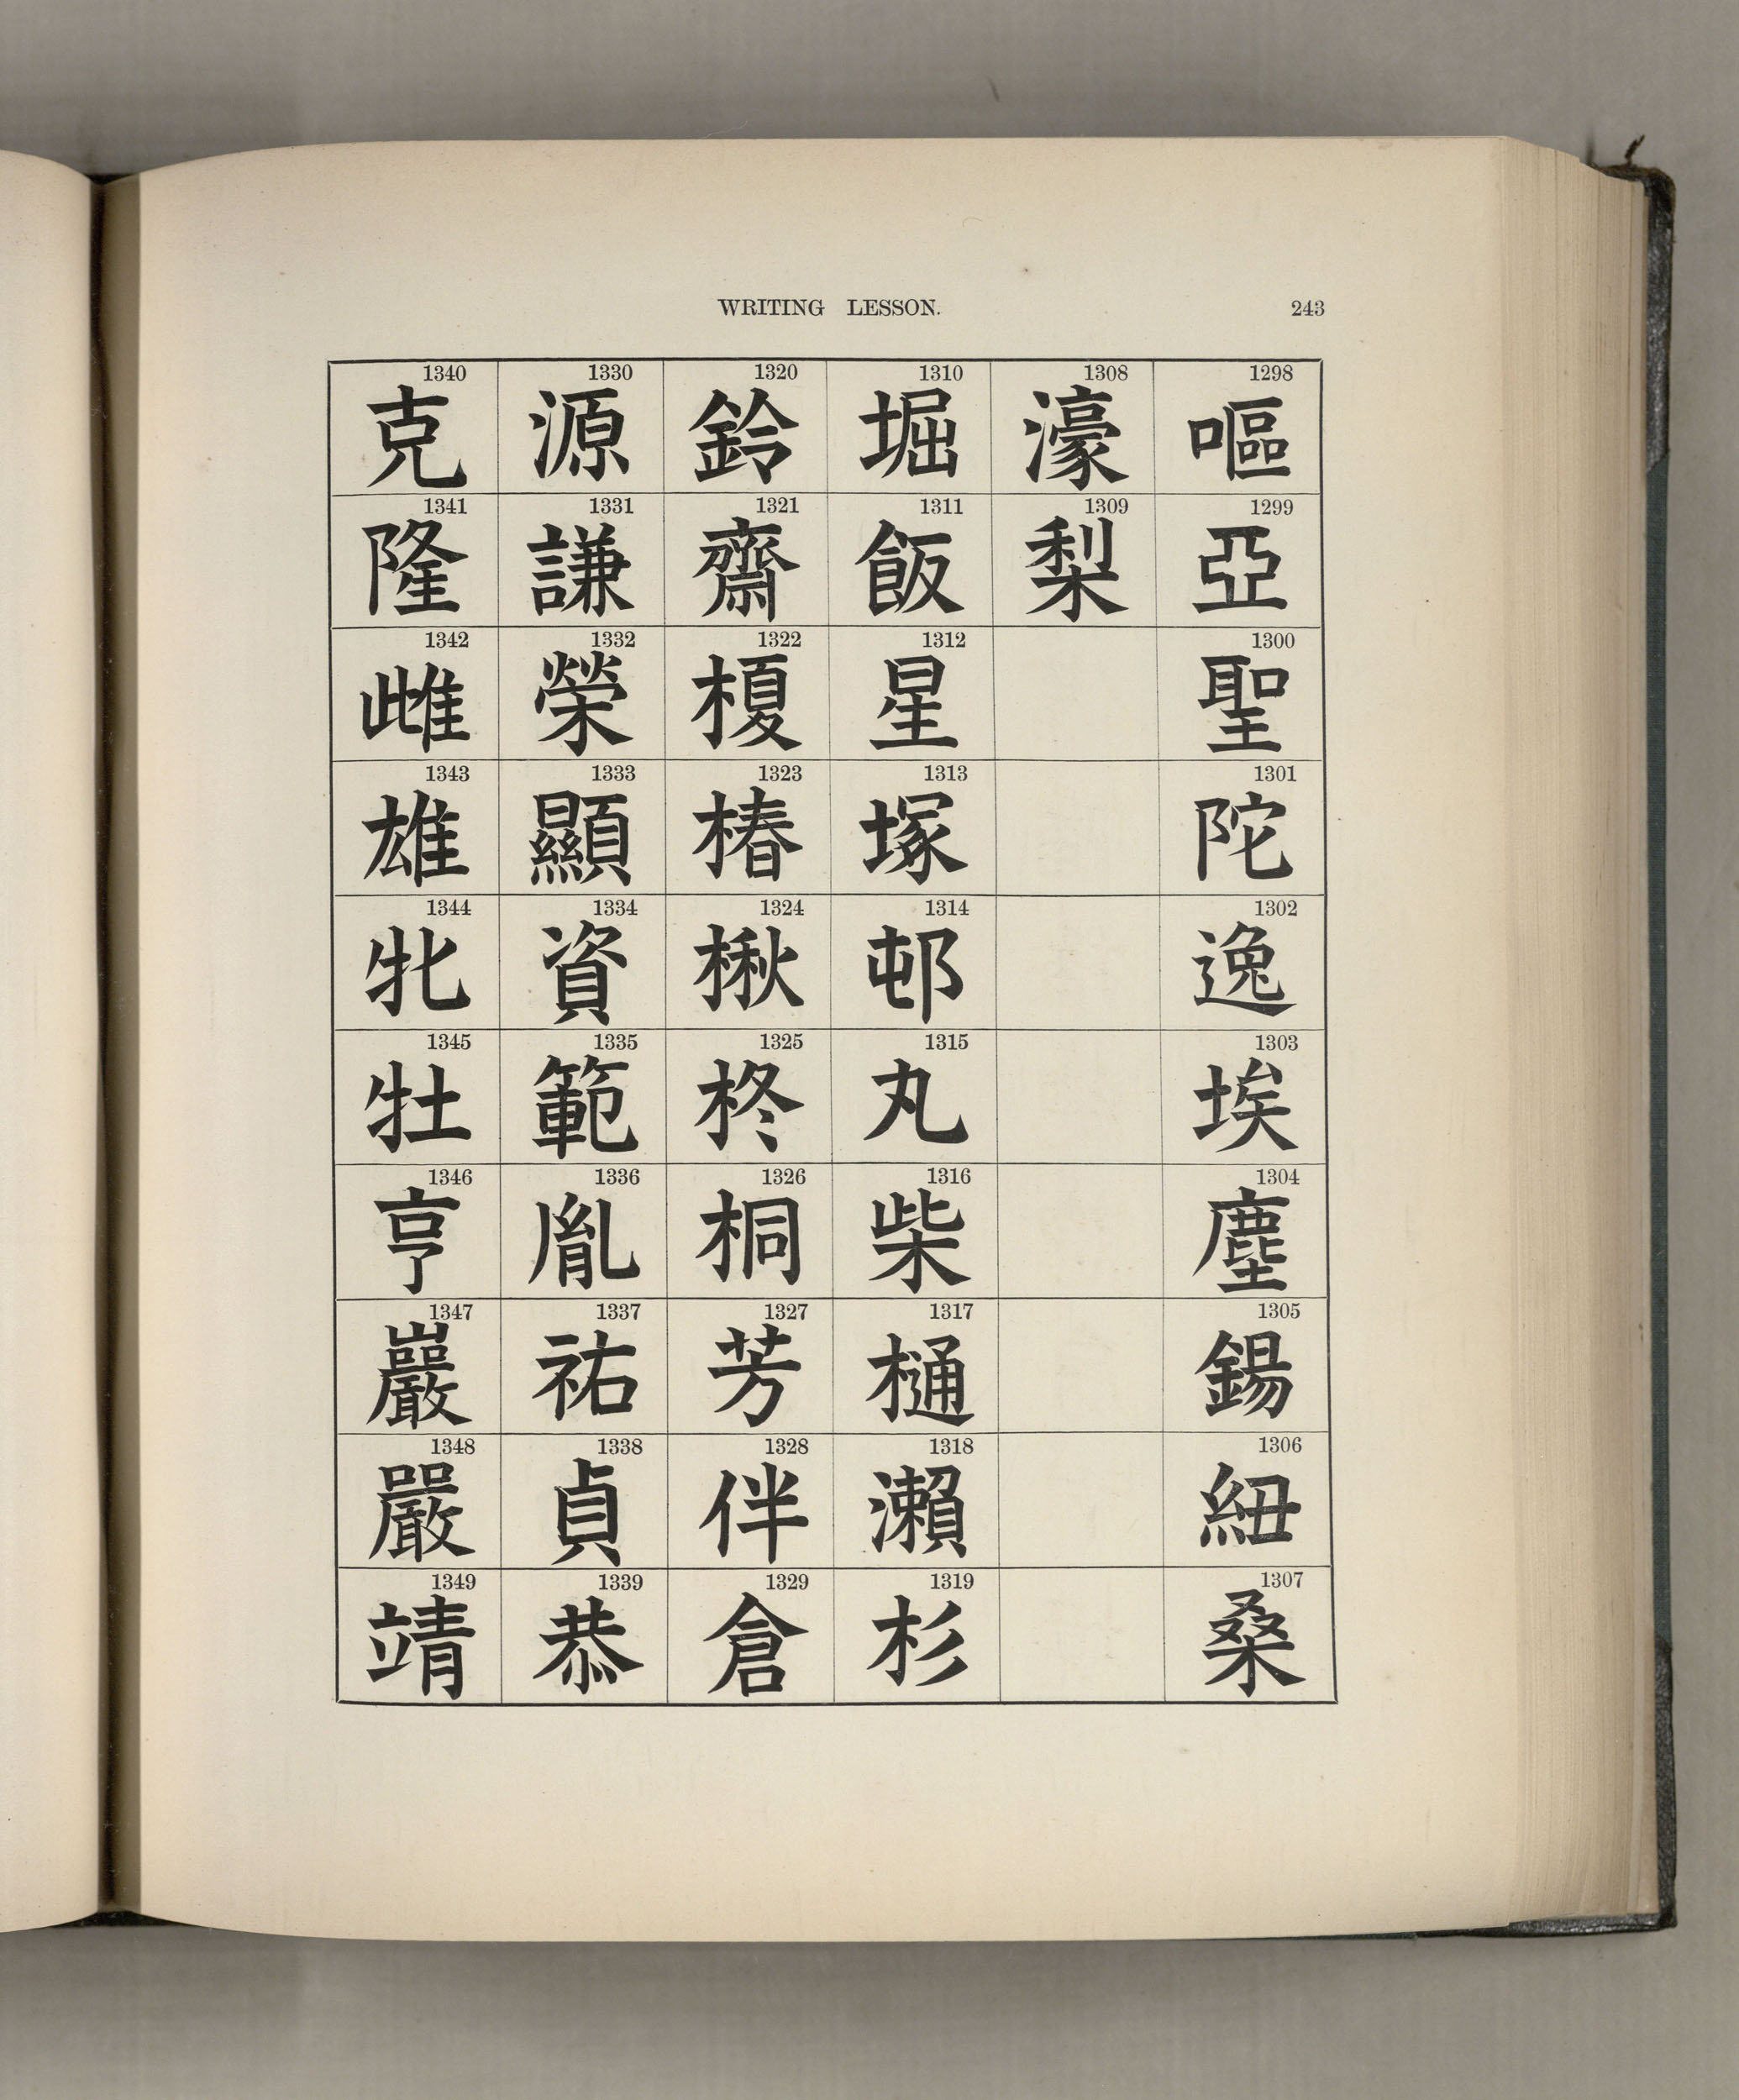 WRITING LESSON. 243
1298 嘔
1299 亞
1300 聖
1301 陀
1302 逸
1303 埃
1304 塵
1305 錫
1306 紐
1307 桑
1308 濠
1309 梨
1310 堀
1311 飯
1312 星
1313 塚
1314 邨
1315 丸
1316 柴
1317 樋
1318 瀨
1319 杉
1320 鈴
1321 齋
1322 榎
1323 椿
1324 楸
1325 柊
1326 桐
1327 芳
1328 伴
1329 倉
1330 源
1331 謙
1332 榮
1333 顯
1334 資
1335 範
1336 胤
1337 祐
1338 貞
1339 恭
1340 克
1341 隆
1342 雌
1343 雄
1344 牝
1345 牡
1346 亨
1347 巖
1348 嚴
1349 靖